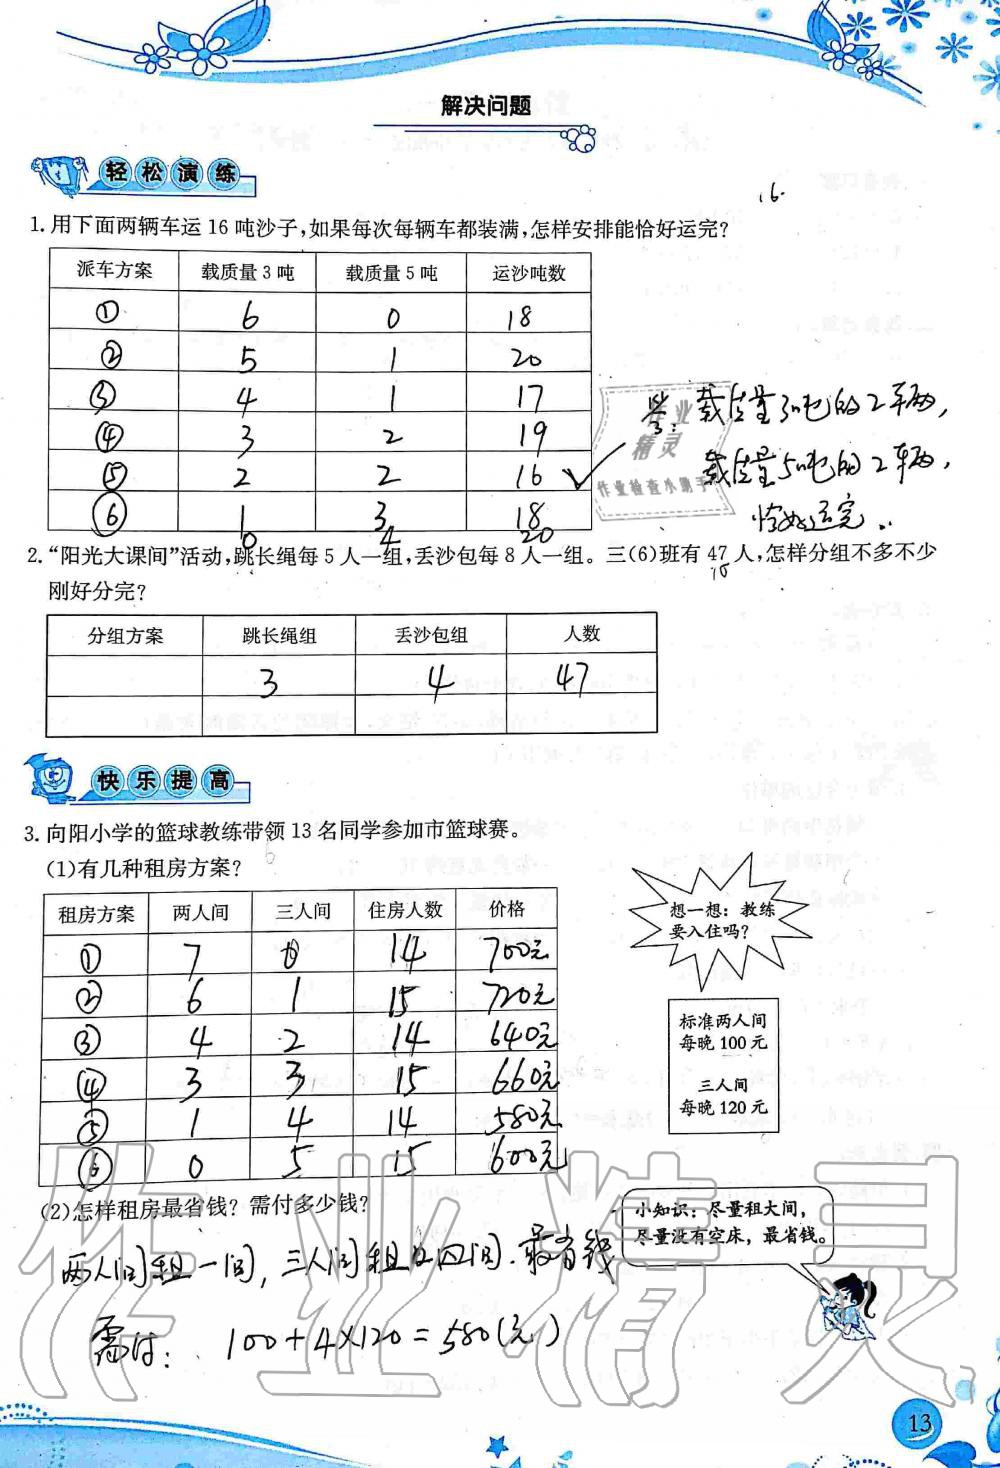 解决问题
轻松演练
16
1. 用下面两辆车运 16 吨沙子,如果每次每辆车都装满,怎样安排能恰好运完?
派车方案 载质量 3 吨 载质量 5 吨 运沙吨数
① 6 0 18
② 5 1 20
③ 4 1 17
④ 3 2 19
⑤ 2 2 16 ✓
⑥ 1 3 18
0 4 20
答:载质量3吨的2辆,
载质量5吨的2辆,
恰好运完。
作业
精灵
作业检查小助手
2. “阳光大课间”活动,跳长绳每 5 人一组,丢沙包每 8 人一组。三(6)班有 47 人,怎样分组不多不少
刚好分完?
分组方案 跳长绳组 丢沙包组 人数
3 4 47
快乐提高
3. 向阳小学的篮球教练带领 13 名同学参加市篮球赛。
(1)有几种租房方案?
租房方案 两人间 三人间 住房人数 价格
① 7 0 14 700元
② 6 1 15 720元
③ 4 2 14 640元
④ 3 3 15 660元
⑤ 1 4 14 580元
⑥ 0 5 15 600元
想一想:教练
要入住吗?
标准两人间
每晚 100 元
三人间
每晚 120 元
(2)怎样租房最省钱?需付多少钱?
两人间租一间,三人间租四间.最省钱
需付: 100+4×120=580(元)
小知识:尽量租大间,
尽量没有空床,最省钱。
作业精灵
13